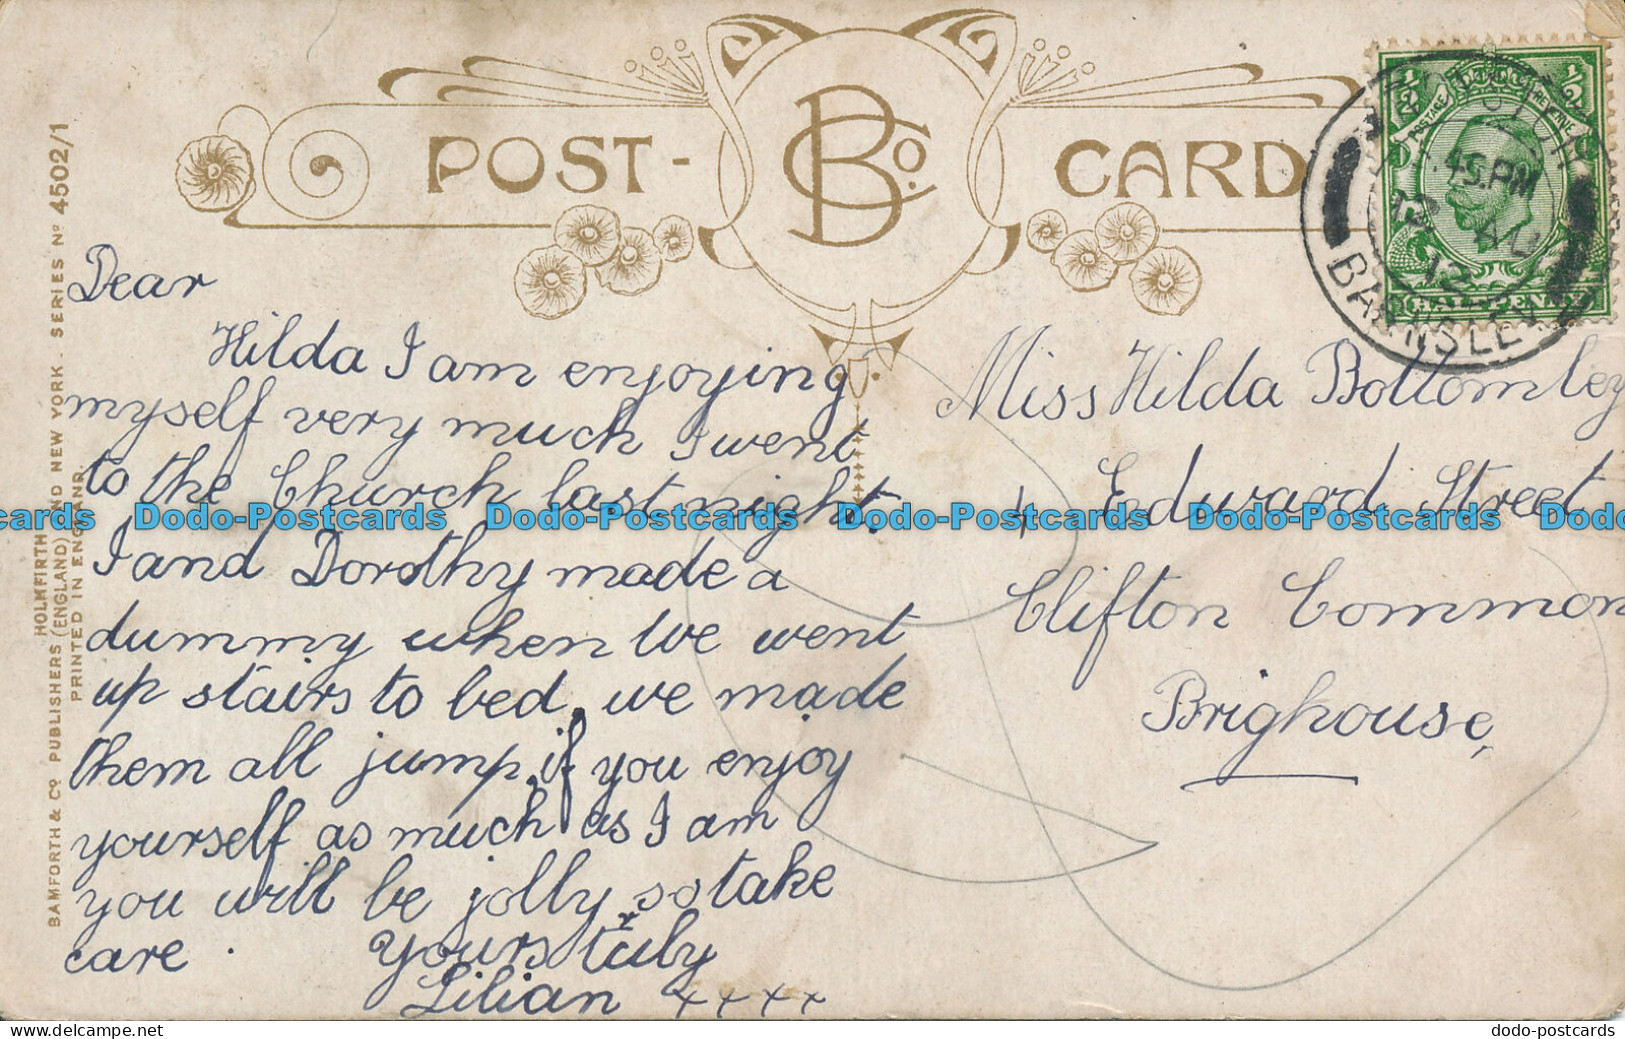 POST - CARD
BCo.
½ ½
POSTAGE REVENUE
HALFPENNY
45.PM
12
BARNSLEY
BAMFORTH & Cº PUBLISHERS (ENGLAND) AND NEW YORK. SERIES Nº 4502/1
HOLMFIRTH
PRINTED IN ENGLAND.
Dear
Hilda I am enjoying
myself very much I went
to the Church last night.
I and Dorothy made a
dummy when we went
up stairs to bed, we made
them all jump, if you enjoy
yourself as much as I am
you will be jolly so take
care.
Yours truly
Lilian x x x x
Miss Hilda Bottomley
4 Edward Street
Clifton Common
Brighouse,
cards Dodo-Postcards Dodo-Postcards Dodo-Postcards Dodo-Postcards Dodo
delcampe.net
dodo-postcards